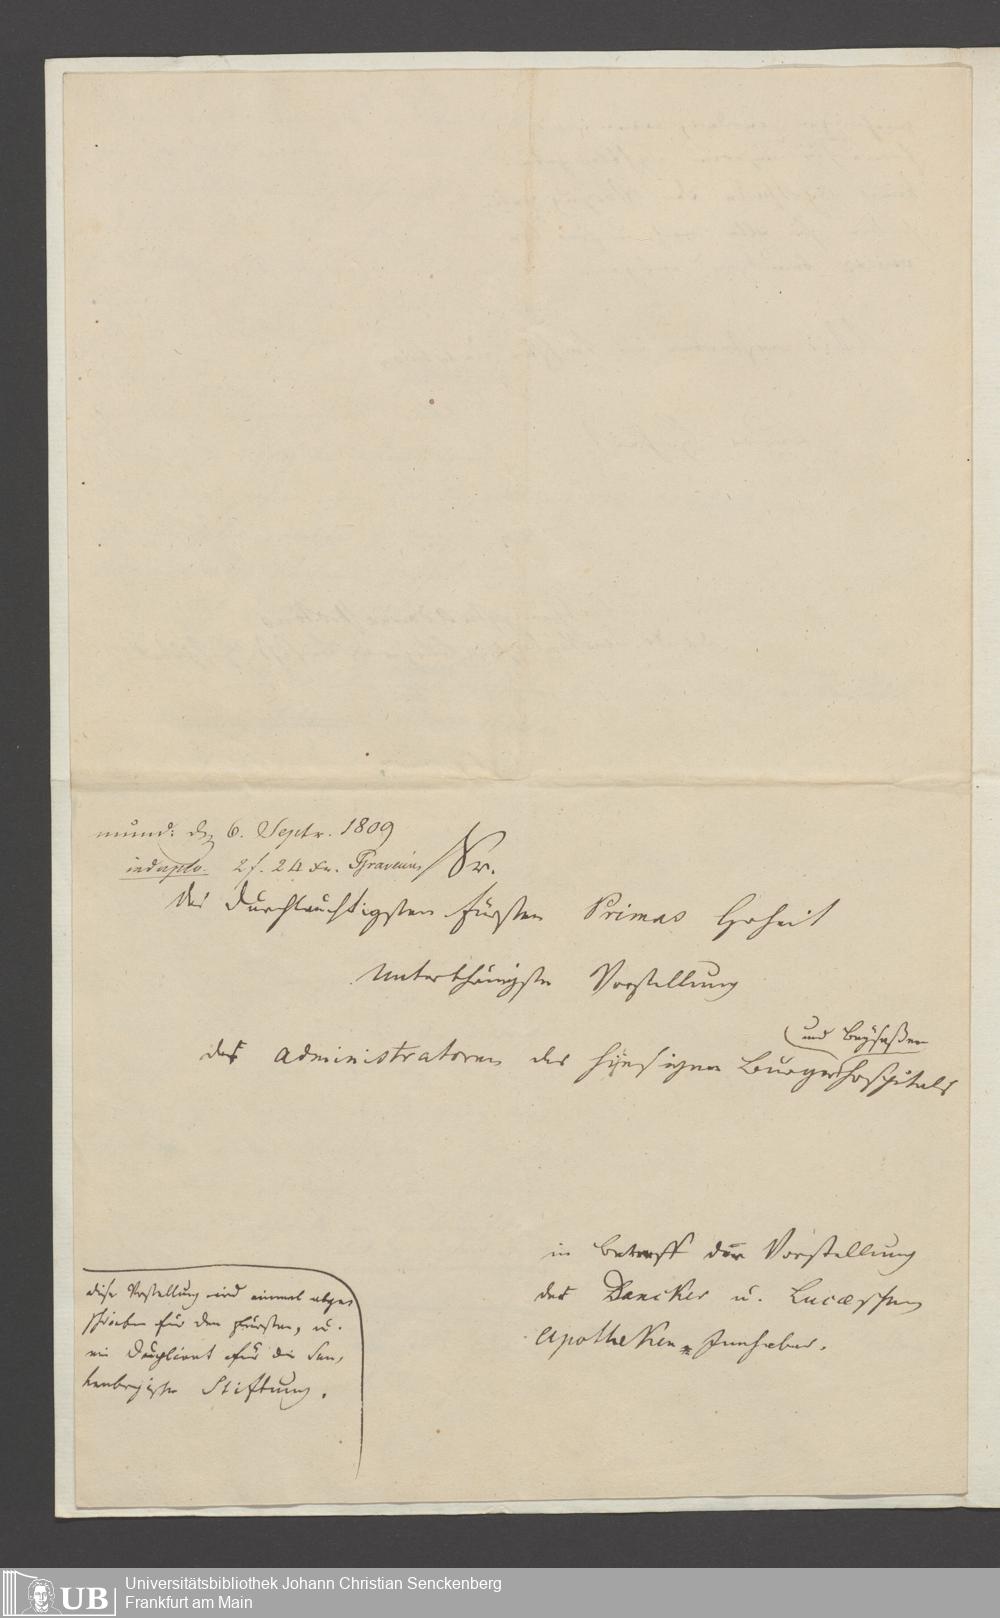 mund: d 6. Septr. 1809
in duplo. 2 f. 24 xr.
Sr.
des Durchlauchtigsten Fürsten Primas Hoheit
Unterthänigste Vorstellung
und Beysaßen
der Administratoren des hiesigen Burgerhospitals
in betreff der Vorstellung
der Dancker u. Lucaeschen
Apotheken-Innhaber.
diese Vorstellung wird einmal abge,
schrieben für den Fürsten, u.
ein Duplicat für die Sen,
kenbergische Stiftung.
UB
Universitätsbibliothek Johann Christian Senckenberg
Frankfurt am Main